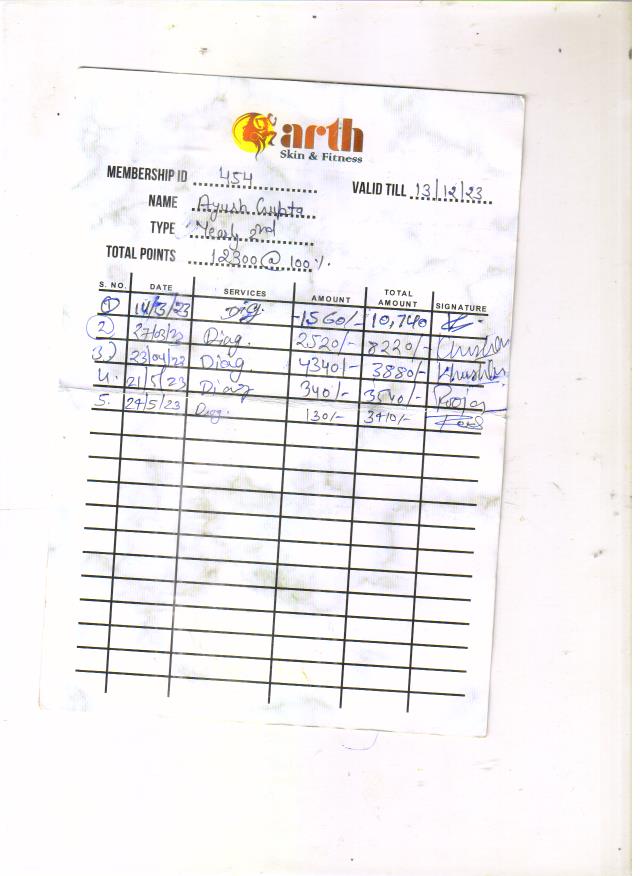 arth
Skin & Fitness
MEMBERSHIP ID 454
VALID TILL 13/12/23
NAME Ayush Gupta
TYPE Yearly 2nd
TOTAL POINTS 12300 @ 100%
S. NO. DATE SERVICES AMOUNT TOTAL AMOUNT SIGNATURE
1 14/3/23 Diag. -1560/- 10,740
2 27/03/23 Diag. 2520/- 8220/-
3.) 23/04/23 Diag. 4340/- 3880/- Khushbu
4. 21/5/23 Diag 340/- 3540/- Pooja
5. 24/5/23 Diag. 130/- 3410/-